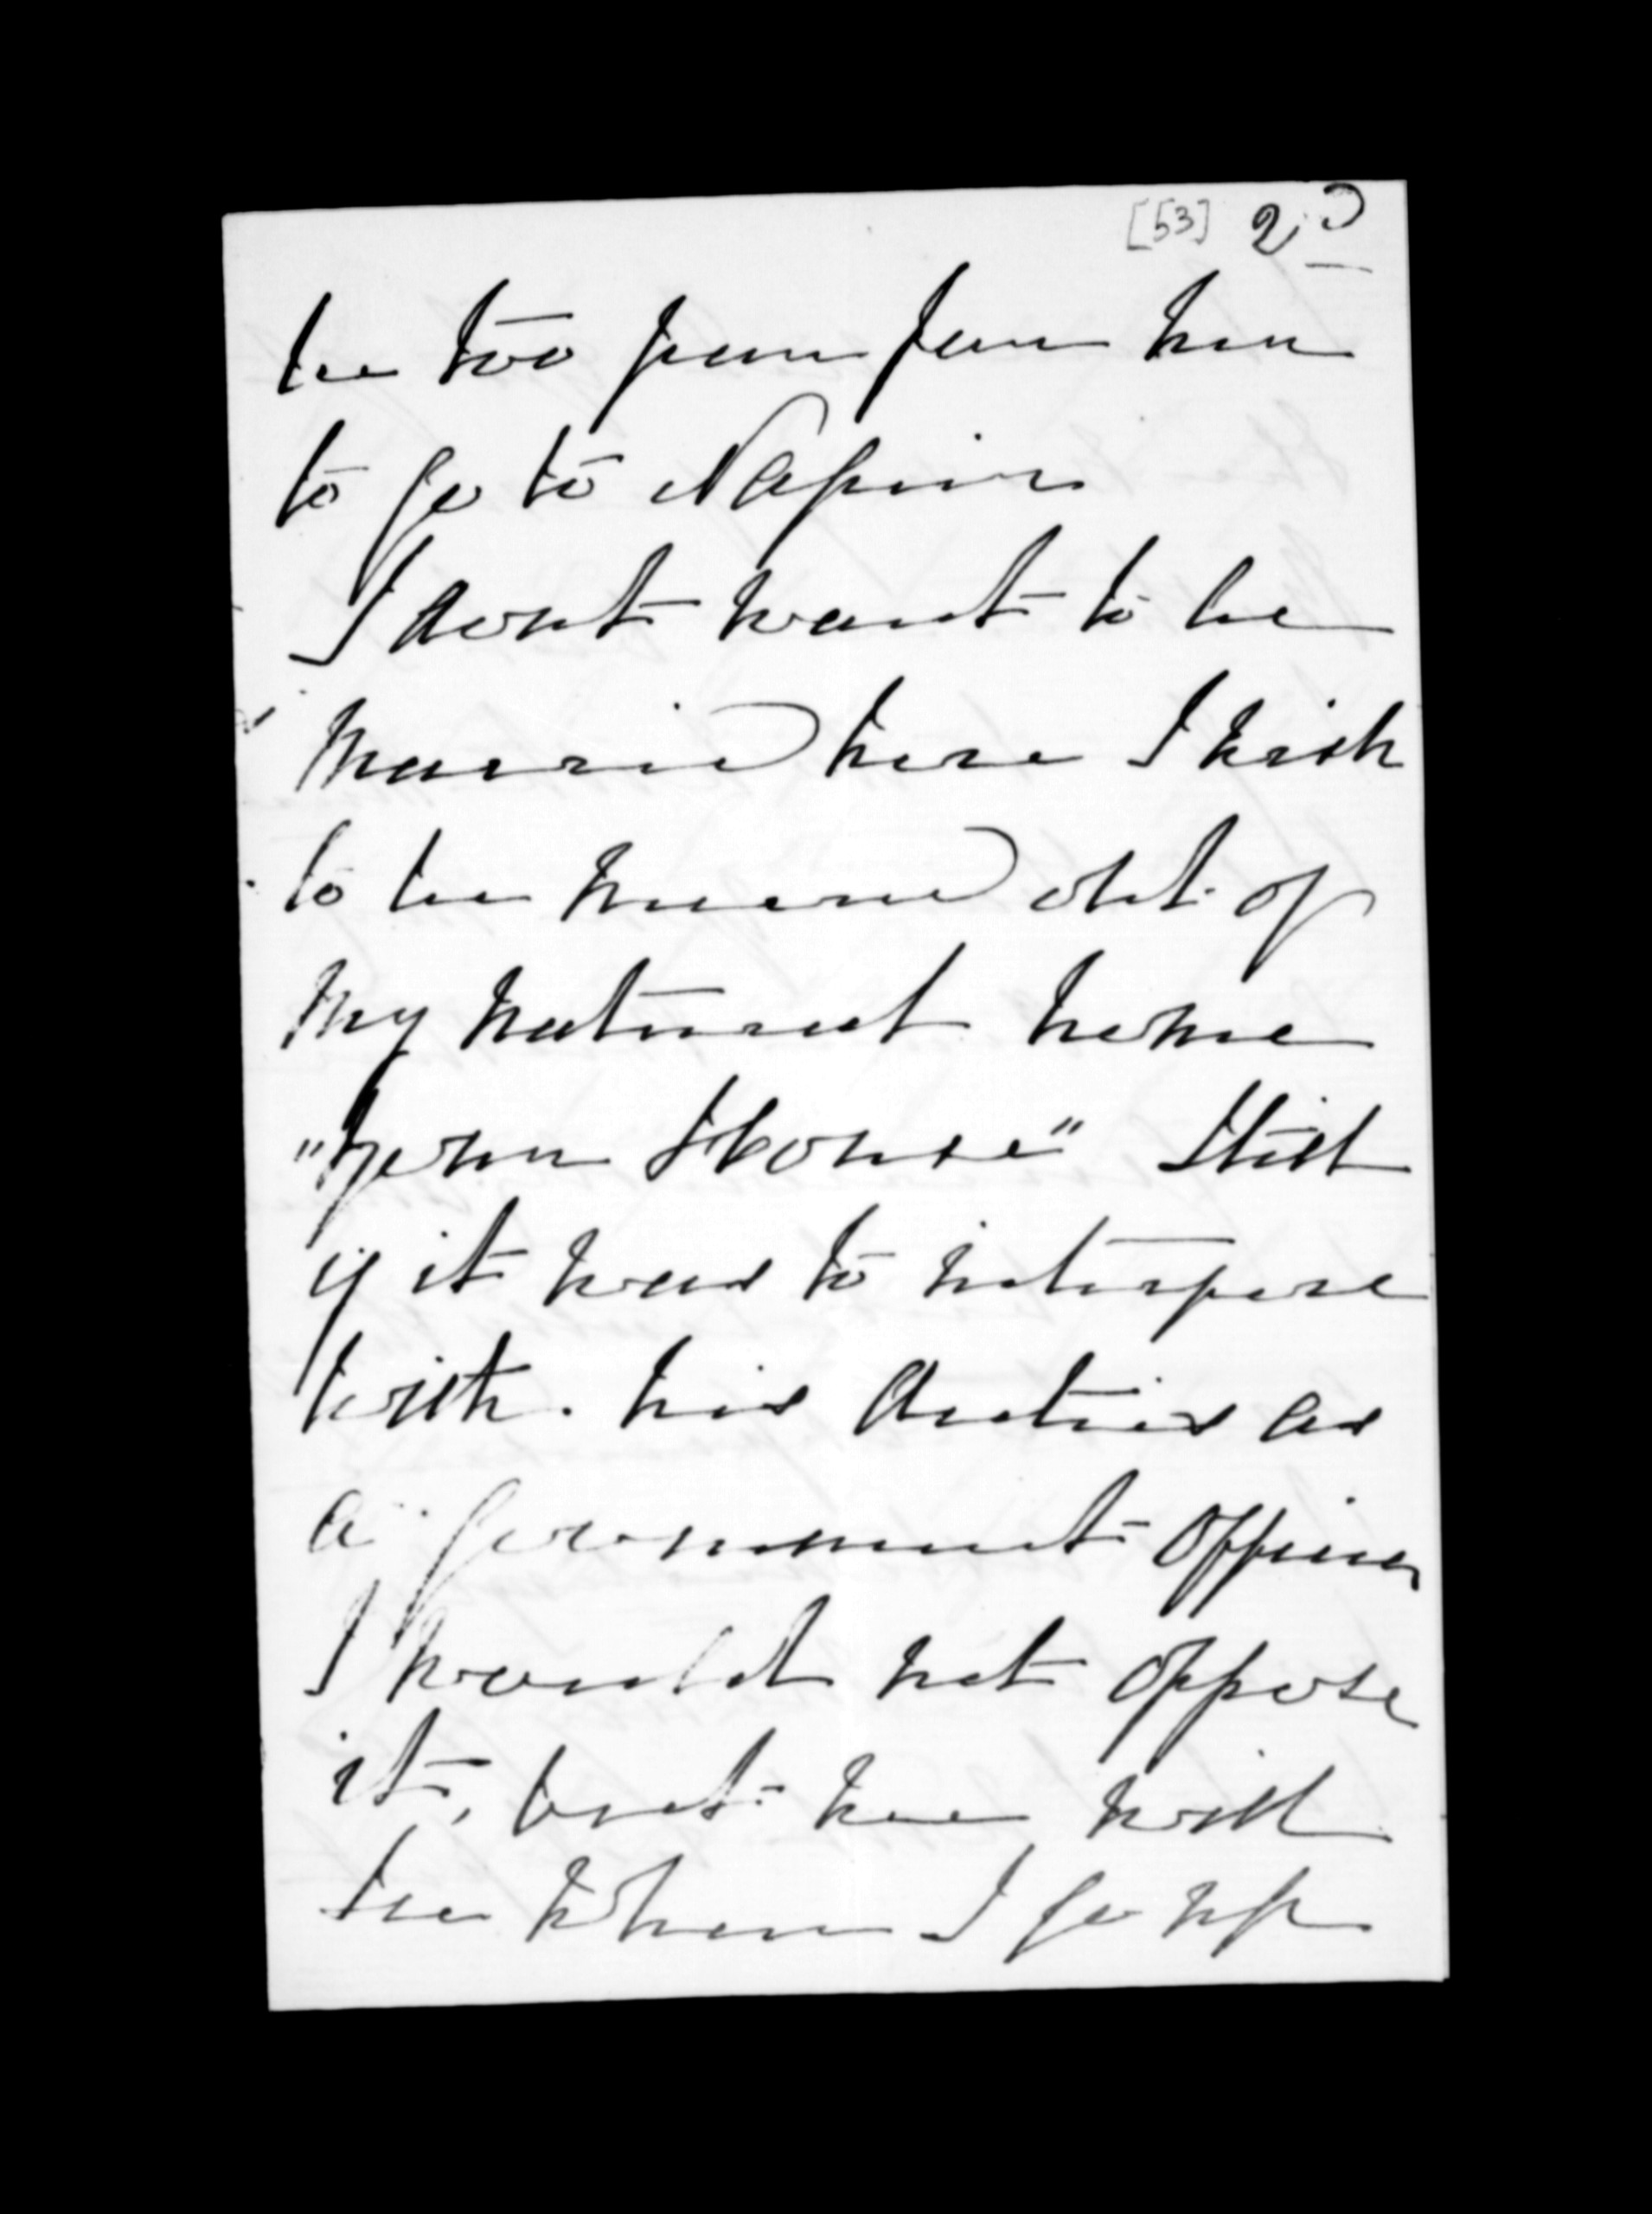 [53] 2
be too far for him
to go to Napier
I dont want to be
Married here I wish
to be married out of
my natural home
"Fern House" Still
if it was to interfere
with his duties as
a Government Officer
I would not oppose
it, but he will
be when I go up